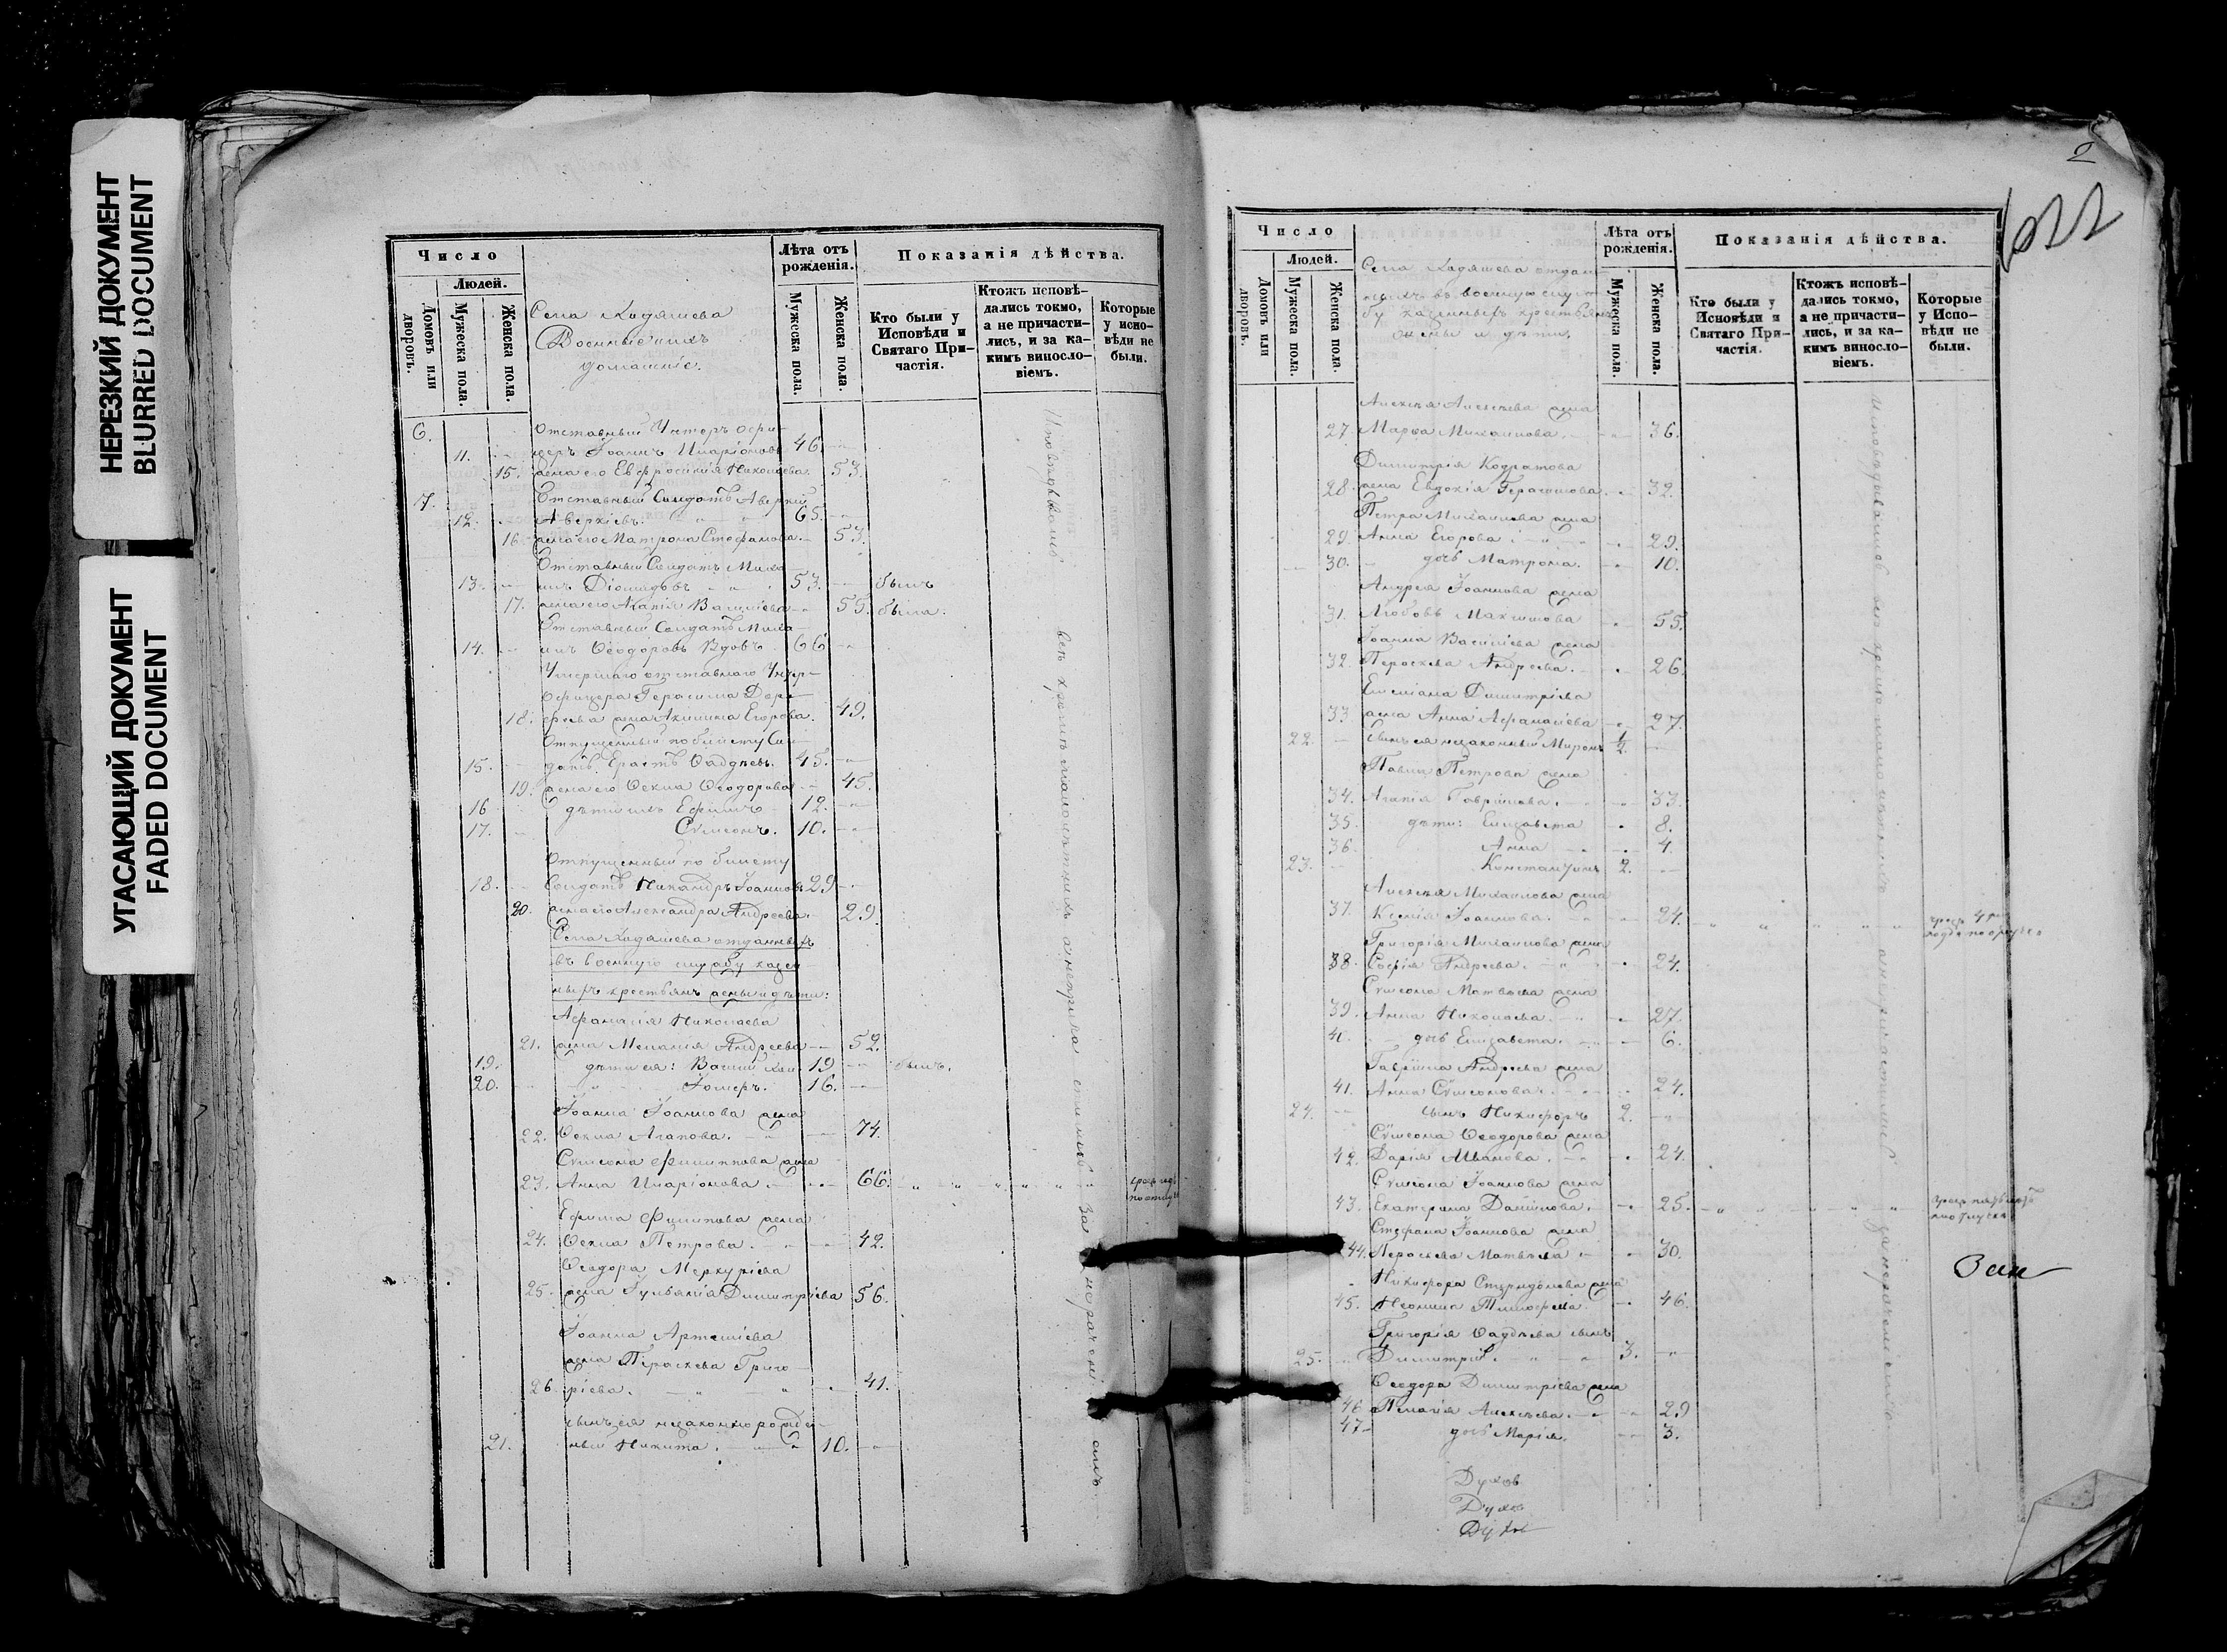 НЕРЕЗКИЙ ДОКУМЕНТ
BLURRED DOCUMENT
УГАСАЮЩИЙ ДОКУМЕНТ
FADED DOCUMENT
Число
Людей.
Домовъ или дворовъ.
Мужеска пола.
Женска пола.
Села Кадышева
Военные и ихъ
домашніе.
Лѣта отъ рожденія.
Мужеска пола.
Женска пола.
Показанія дѣйства.
Кто были у Исповѣди и Святаго Причастія.
Ктожъ исповѣдались токмо, а не причастились, и за какимъ винословіемъ.
Которые у исповѣди не были.
6. Отставный Унтеръ Офи-
11. церъ Іоаннъ Иларіоновъ 46.
15. жена его Евфросинія Николаева. 53.
7. Отставный Солдатъ Аверкій
12. Аверкіевъ. 65.
16. жена его Матрона Стефанова. 53.
Отставный Солдатъ Миха-
13. илъ Діомидовъ 53. былъ
17. жена его Агапія Василіева 55. была.
Отставный Солдатъ Миха-
14. илъ Ѳеодоровъ Вдовъ 66
Умершаго отставнаго Унтер-
Офицера Герасима Доро-
18. феева жена Акилина Егорова. 49.
Отпущенный по билету Сол-
15. датъ Ерастъ Ѳаддѣевъ. 45.
19. жена его Ѳекла Ѳеодорова 45.
16 дѣти ихъ Ефимъ 12.
17. Сѵмеонъ. 10.
Отпущенный по билету
18. Солдатъ Никандръ Іоанновъ 29
20. жена его Александра Андреева. 29.
Села Кадышева отданныхъ
въ военную службу казен-
ныхъ крестьянъ жены и дѣти:
Аѳанасія Николаева
21. жена Меланія Андреева 52.
19. дѣти ея: Василій 19 былъ.
20. 16.
Іоанна Іоаннова жена
22. Ѳекла Агапова. 74.
Сѵмеона Филиппова жена
23. Анна Иларіонова. 66.
Ефима Филипова жена
24. Ѳекла Петрова. 42.
Ѳеодора Меркуріева
25. жена Іуліанія Димитріева 56.
Іоанна Артеміева
жена Параскева Григо-
26. ріева. 41.
сынъ ея незаконнорожден-
21. ный Никита. 10.
Исповѣдовались всѣ кромѣ малолѣтнихъ а не прича стились за нераченіемъ
2
622
Число
Людей.
Домовъ или дворовъ.
Мужеска пола.
Женска пола.
Села Кадышева отдан-
ныхъ въ военную служ-
бу казенныхъ крестьянъ
жены и дѣти.
Лѣта отъ рожденія.
Мужеска пола.
Женска пола.
Показанія дѣйства.
Кто были у Исповѣди и Святаго Причастія.
Ктожъ исповѣдались токмо, а не причастились, и за какимъ винословіемъ.
Которые у Исповѣди не были.
Алексѣя Алексѣева жена
27. Марѳа Михаилова. 36.
Димитрія Кодратова
28. жена Евдокія Герасимова. 32.
Петра Михаилова жена
29. Анна Егорова 29.
30. дочь Матрона. 10.
Андрея Іоаннова жена
31. Любовь Максимова 55.
Іоанна Василіева жена
32. Параскева Андреева. 26.
Емеліана Димитріева
33. жена Анна Аѳанасіева 27.
22. сынъ ея незаконный Миронъ 1/2.
Павла Петрова жена
34. Агапія Гавріилова. 33.
35. дѣти: Елисавета 8.
36. Анна 4.
23. Константинъ 2.
Алексѣя Михаилова жена
37. Ксенія Іоаннова. 24.
Григорія Михаилова жена
38. Софія Андреева. 24.
Сѵмеона Матвѣева жена
39. Анна Николаева 27.
40. дочь Елисавета. 6.
Гавріила Андреева жена
41. Анна Сѵмеонова. 24.
24. сынъ Никифоръ 2.
Сѵмеона Ѳеодорова жена
42. Дарія Иванова. 24.
Сѵмеона Іоаннова жена
43. Екатерина Даніилова. 25.
Стефана Іоаннова жена
44. Параскева Матвѣева 30.
Никифора Спиридонова жена
45. Неонила Тимофеева. 46.
Григорія Ѳаддѣева сынъ
25. Димитрій. 3.
Ѳеодора Димитріева жена
46 Пелагія Алексѣева. 29
47. дочь Марія. 3.
Исповѣдывались всѣ кромѣ малолѣтнихъ а не причастились за нераченіемъ
Духов
Духов